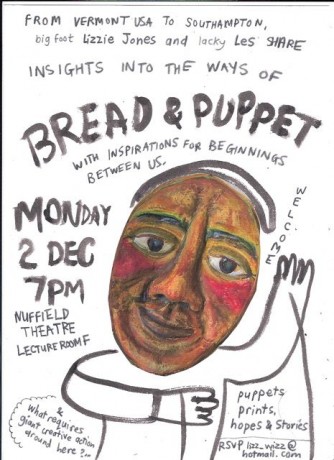 FROM VERMONT USA TO SOUTHAMPTON,
big foot Lizzie Jones and lacky Les SHARE
INSIGHTS INTO THE WAYS OF
BREAD & PUPPET
WITH INSPIRATIONS FOR BEGINNINGS
BETWEEN US.
WELCOME
MONDAY
2 DEC
7PM
NUFFIELD
THEATRE
LECTURE ROOM F
& 
What requires
giant creative action
around here?...
puppets
prints,
hopes & Stories
RSVP lizz_wizz@
hotmail.com